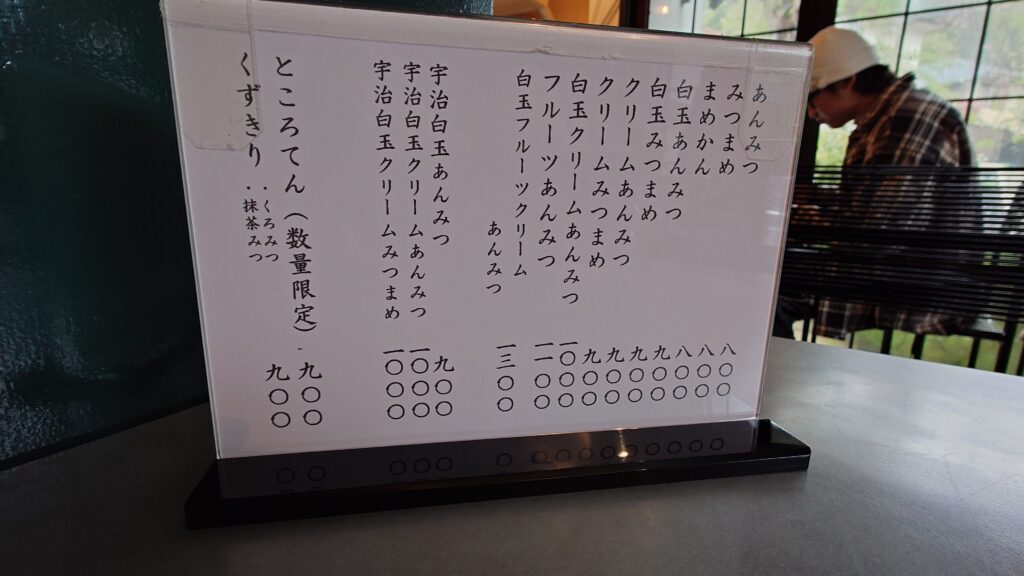 あんみつ 八〇〇
みつまめ 八〇〇
まめかん 八〇〇
白玉あんみつ 九〇〇
白玉みつまめ 九〇〇
クリームあんみつ 九〇〇
クリームみつまめ 九〇〇
白玉クリームあんみつ 一〇〇〇
フルーツあんみつ 一一〇〇
白玉フルーツクリーム
あんみつ 一三〇〇
宇治白玉あんみつ 九〇〇
宇治白玉クリームあんみつ 一〇〇〇
宇治白玉クリームみつまめ 一〇〇〇
ところてん（数量限定） 九〇〇
くずきり‥くろみつ 九〇〇
‥抹茶みつ